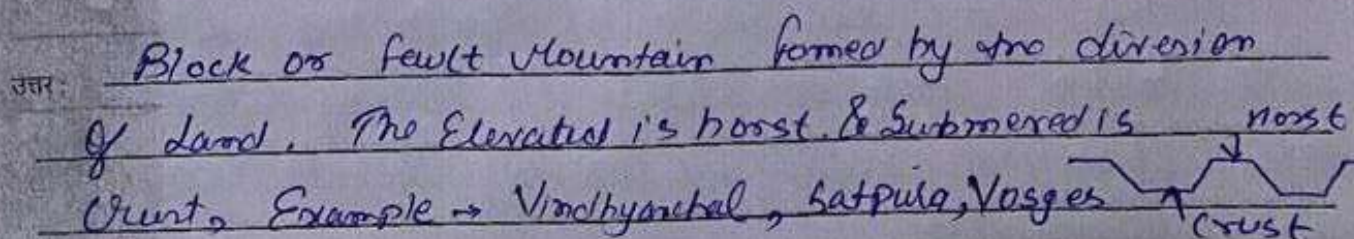 उत्तर: Block or fewlt Mountain fomed by the divesion
of Land. The Elevated is horst. & Submered is horst
Crust, Example → Vindhyanchal, Satpula, Vosges
Crust